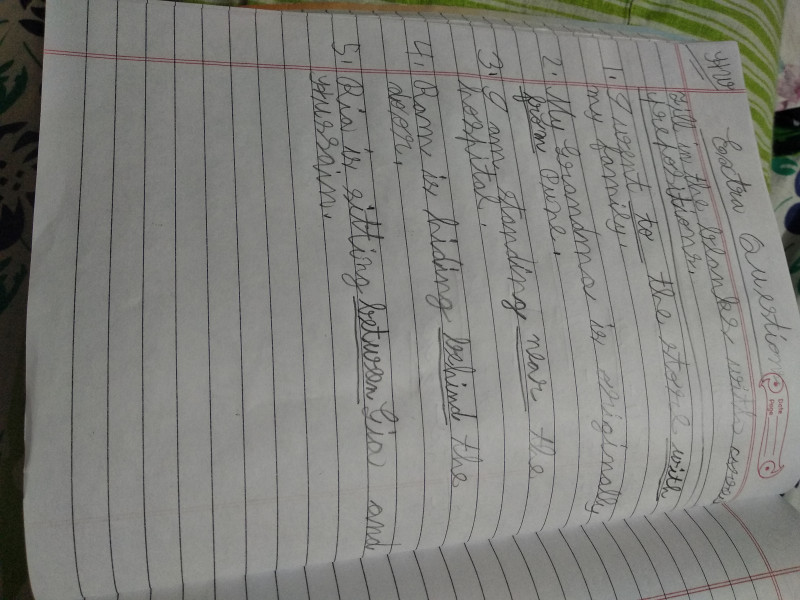 Extra Question
Date
Page
H.W
Fill in the blanks with
prepositions.
1. I went to the store with
my family.
2. My Grandma is originally
from Pune.
3. I am standing near the
hospital.
4. Ram is hiding behind the
door.
5. Ria is sitting between Gia and
Hussain.